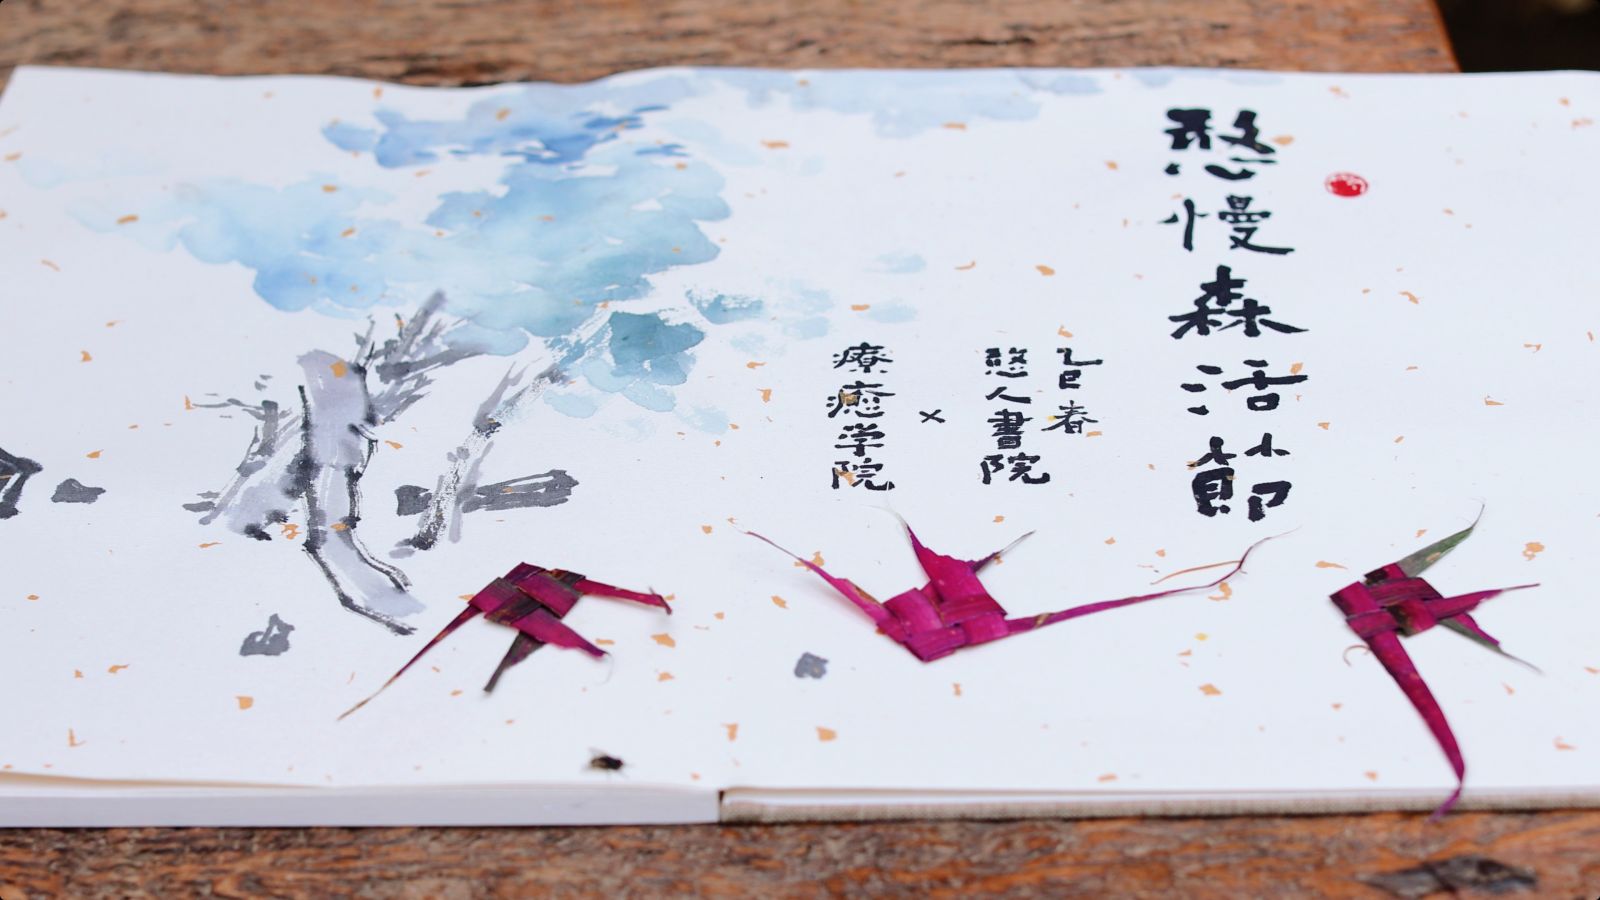 憨慢森活節
乙巳春
憨人書院
×
療癒学院